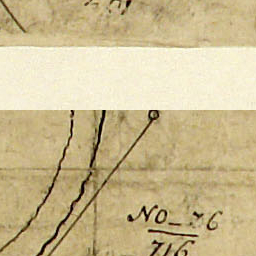 NO_76
716